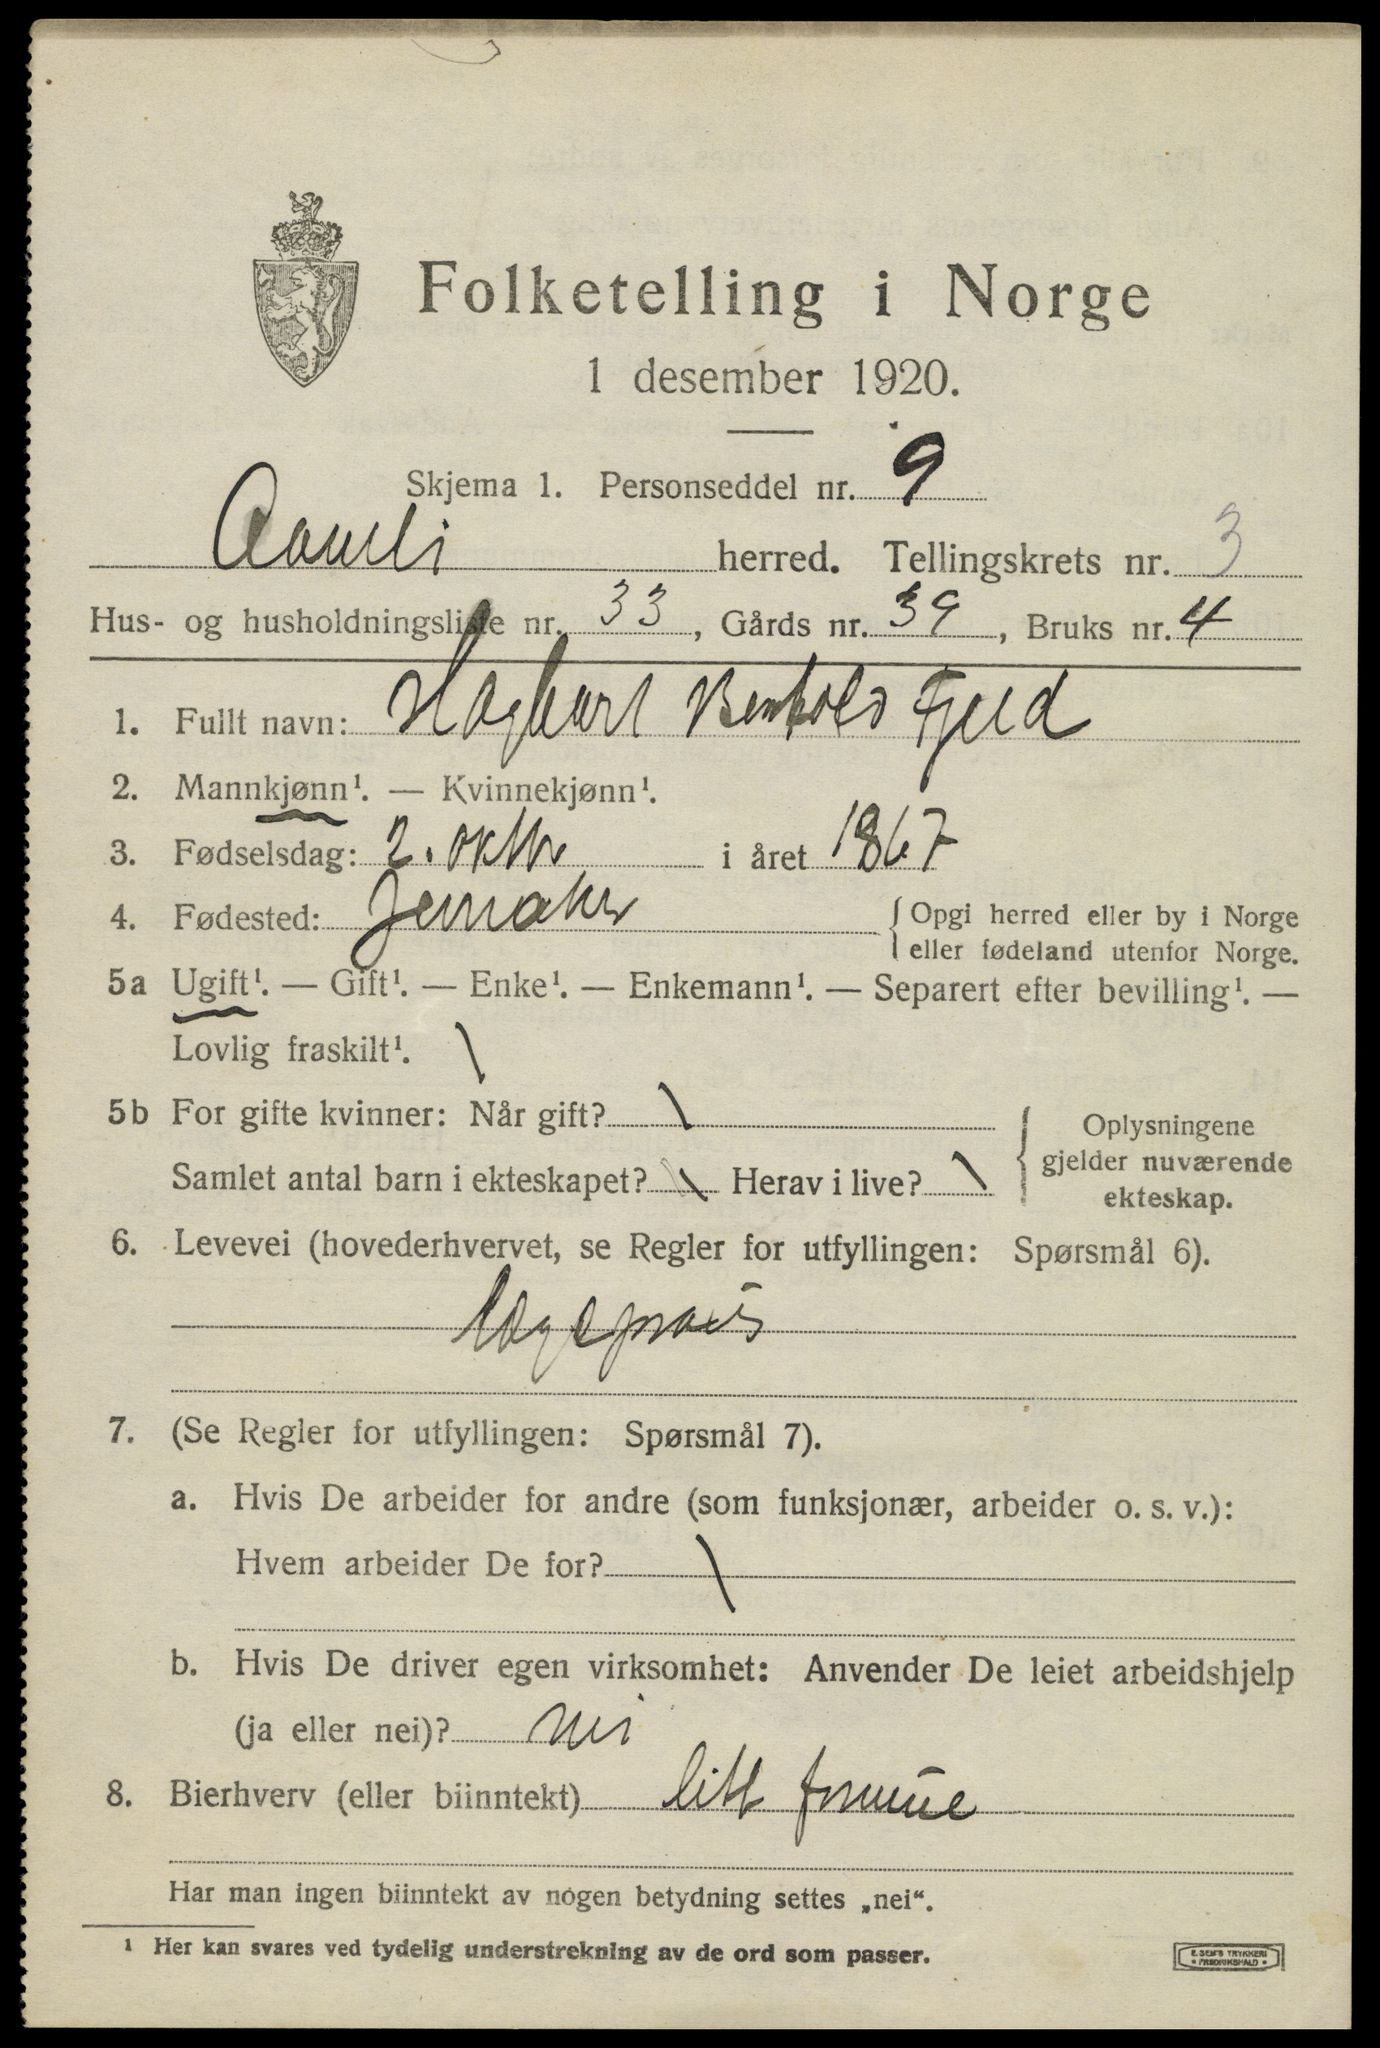 Folketelling i Norge
1 desember 1920.
Skjema 1. Personseddel nr. 9
Aamli herred. Tellingskrets nr. 3
Hus- og husholdningsliste nr. 33, Gårds nr. 39, Bruks nr. 4
1. Fullt navn: Hagbart Berthold Fjeld
2. Mannkjønn¹. — Kvinnekjønn¹.
3. Fødselsdag: 2. oktbr i året 1867
4. Fødested: Jevnaker { Opgi herred eller by i Norge
eller fødeland utenfor Norge.
5a Ugift¹. — Gift¹. — Enke¹. — Enkemann¹. — Separert efter bevilling¹. —
Lovlig fraskilt¹. \
5b For gifte kvinner: Når gift? \
Samlet antal barn i ekteskapet? \ Herav i live? \
{ Oplysningene
gjelder nuværende
ekteskap.
6. Levevei (hovederhvervet, se Regler for utfyllingen: Spørsmål 6).
lægepraxis
7. (Se Regler for utfyllingen: Spørsmål 7).
a. Hvis De arbeider for andre (som funksjonær, arbeider o. s. v.):
Hvem arbeider De for? \
b. Hvis De driver egen virksomhet: Anvender De leiet arbeidshjelp
(ja eller nei)? nei
8. Bierhverv (eller biinntekt) litt formue
Har man ingen biinntekt av nogen betydning settes „nei“.
¹ Her kan svares ved tydelig understrekning av de ord som passer.
E. SEM'S TRYKKERI
• FREDRIKSHALD •